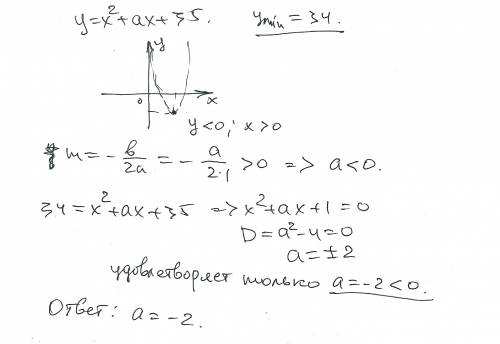 y=x²+ax+35. ymin=34.
y
0 x
y<0; x>0
m=-b/2a=-a/2·1>0 => a<0.
34=x²+ax+35 => x²+ax+1=0
D=a²-4=0
a=±2
удовлетворяет только a=-2<0.
Ответ: a=-2.